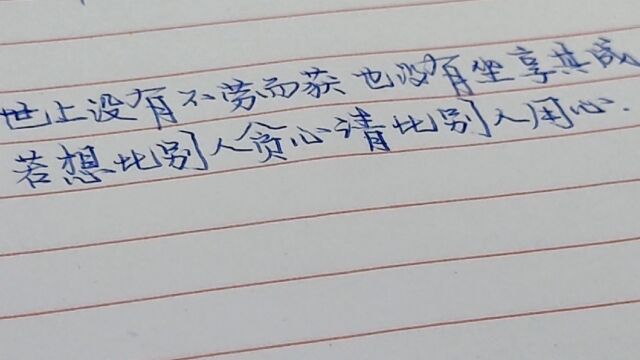 世上没有不劳而获 也没有坐享其成
若想比别人贪心请比别人用心.